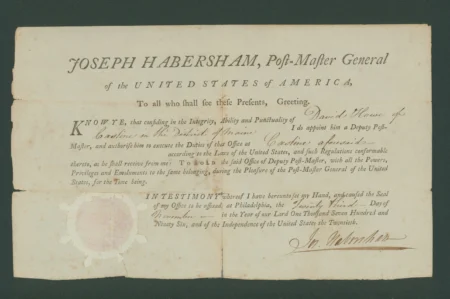 JOSEPH HABERSHAM, Post-Master General
of the UNITED STATES of AMERICA,
To all who shall see these Presents, Greeting.
KNOW YE, that confiding in the Integrity, Ability and Punctuality of David Howe of
Castine in the District of Maine I do appoint him a Deputy Post-
Master, and authorise him to execute the Duties of that Office at Castine aforesaid
according to the Laws of the United States, and such Regulations conformable
thereto, as he shall receive from me: To HOLD the said Office of Deputy Post-Master, with all the Powers,
Privileges and Emoluments to the same belonging, during the Pleasure of the Post-Master General of the United
States, for the Time being.
IN TESTIMONY whereof I have hereunto set my Hand, and caused the Seal
of my Office to be affixed, at Philadelphia, the Twenty third Day of
November in the Year of our Lord One Thousand Seven Hundred and
Ninety Six, and of the Independence of the United States the Twentieth.
Jos. Habersham